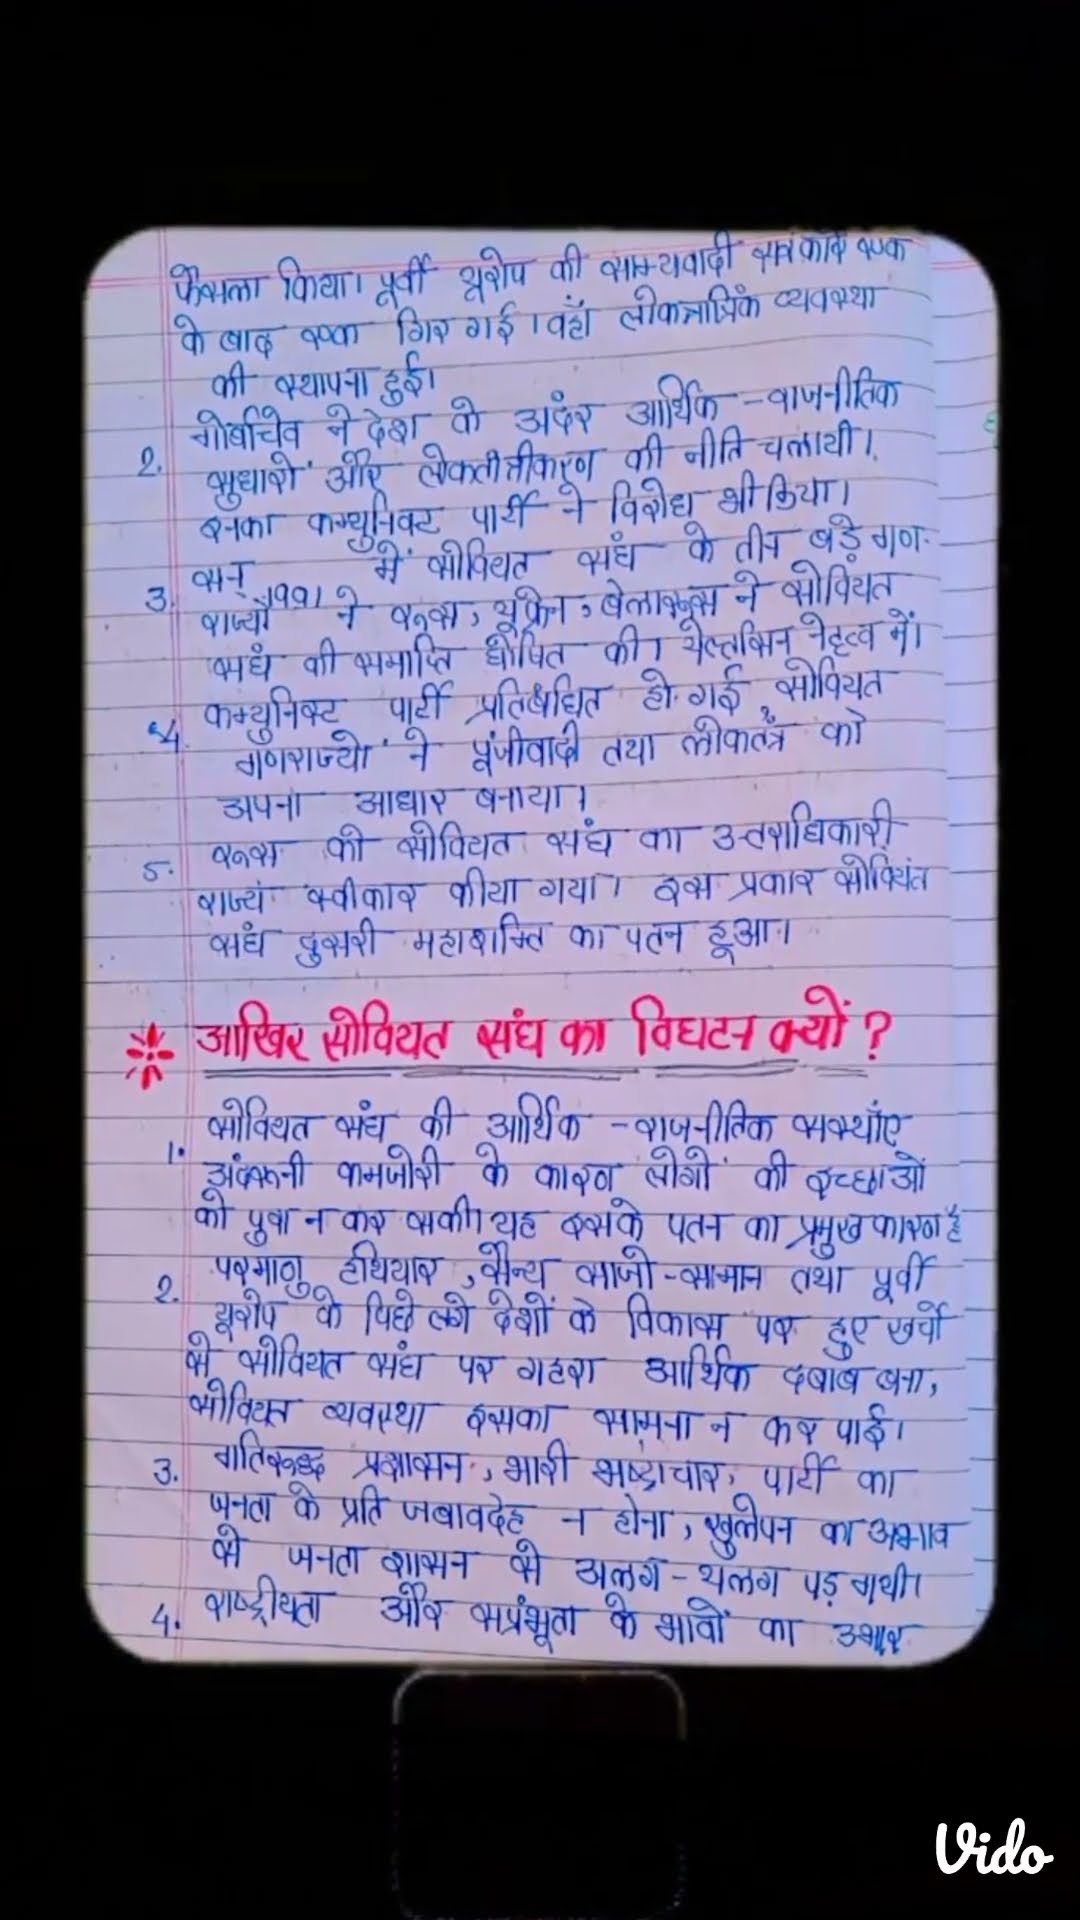 फैसला किया। पूर्वी यूरोप की साम्यवादी सरकारें एक
के बाद एक गिर गई। वहाँ लोकतांत्रिक व्यवस्था
की स्थापना हुई।
2. गोर्बाचेव ने देश के अदंर आर्थिक - राजनीतिक
सुधारों और लोकतंत्रीकरण की नीति चलायी।
इनका कम्युनिस्ट पार्टी ने विरोध भी किया।
3. सन् 1991 में सोवियत संघ के तीन बड़े गण-
राज्यों ने रूस, यूक्रेन, बेलारूस ने सोवियत
संघ की समाप्ति घोषित की। येल्तसिन नेहत्व में।
4. कम्युनिस्ट पार्टी प्रतिबंधित हो गई, सोवियत
गणराज्यों ने पूंजीवादी तथा लोकतंत्र को
अपना आधार बनाया।
5. रूस को सोवियत संघ का उत्तराधिकारी
राज्य स्वीकार कीया गया। इस प्रकार सोवियत
संघ दुसरी महाशक्ति का पतन हूआ।
आखिर सोवियत संघ का विघटन क्यों ?
1. सोवियत संघ की आर्थिक - राजनीतिक सस्थाँए
अंदरूनी कमजोरी के कारण लोगों की इच्छाओं
को पुरा न कर सकी। यह इसके पतन का प्रमुख कारण है
2. परमाणु हथियार, सैन्य साजो - सामान तथा पूर्वी
यूरोप के पिछे लगे देशों के विकास पर हुए खर्चो
से सोवियत संघ पर गहरा आर्थिक दबाब बना,
सोवियत व्यवस्था इसका सामना न कर पाई।
3. गतिरूद्ध प्रशासन, भारी भष्ट्राचार, पार्टी का
जनता के प्रति जबावदेह न होना, खुलेपन का अभाव
से जनता शासन से अलग - थलग पड़ गयी।
4. राष्ट्रीयता और सप्रंभूता के भावों का उभार
Vido